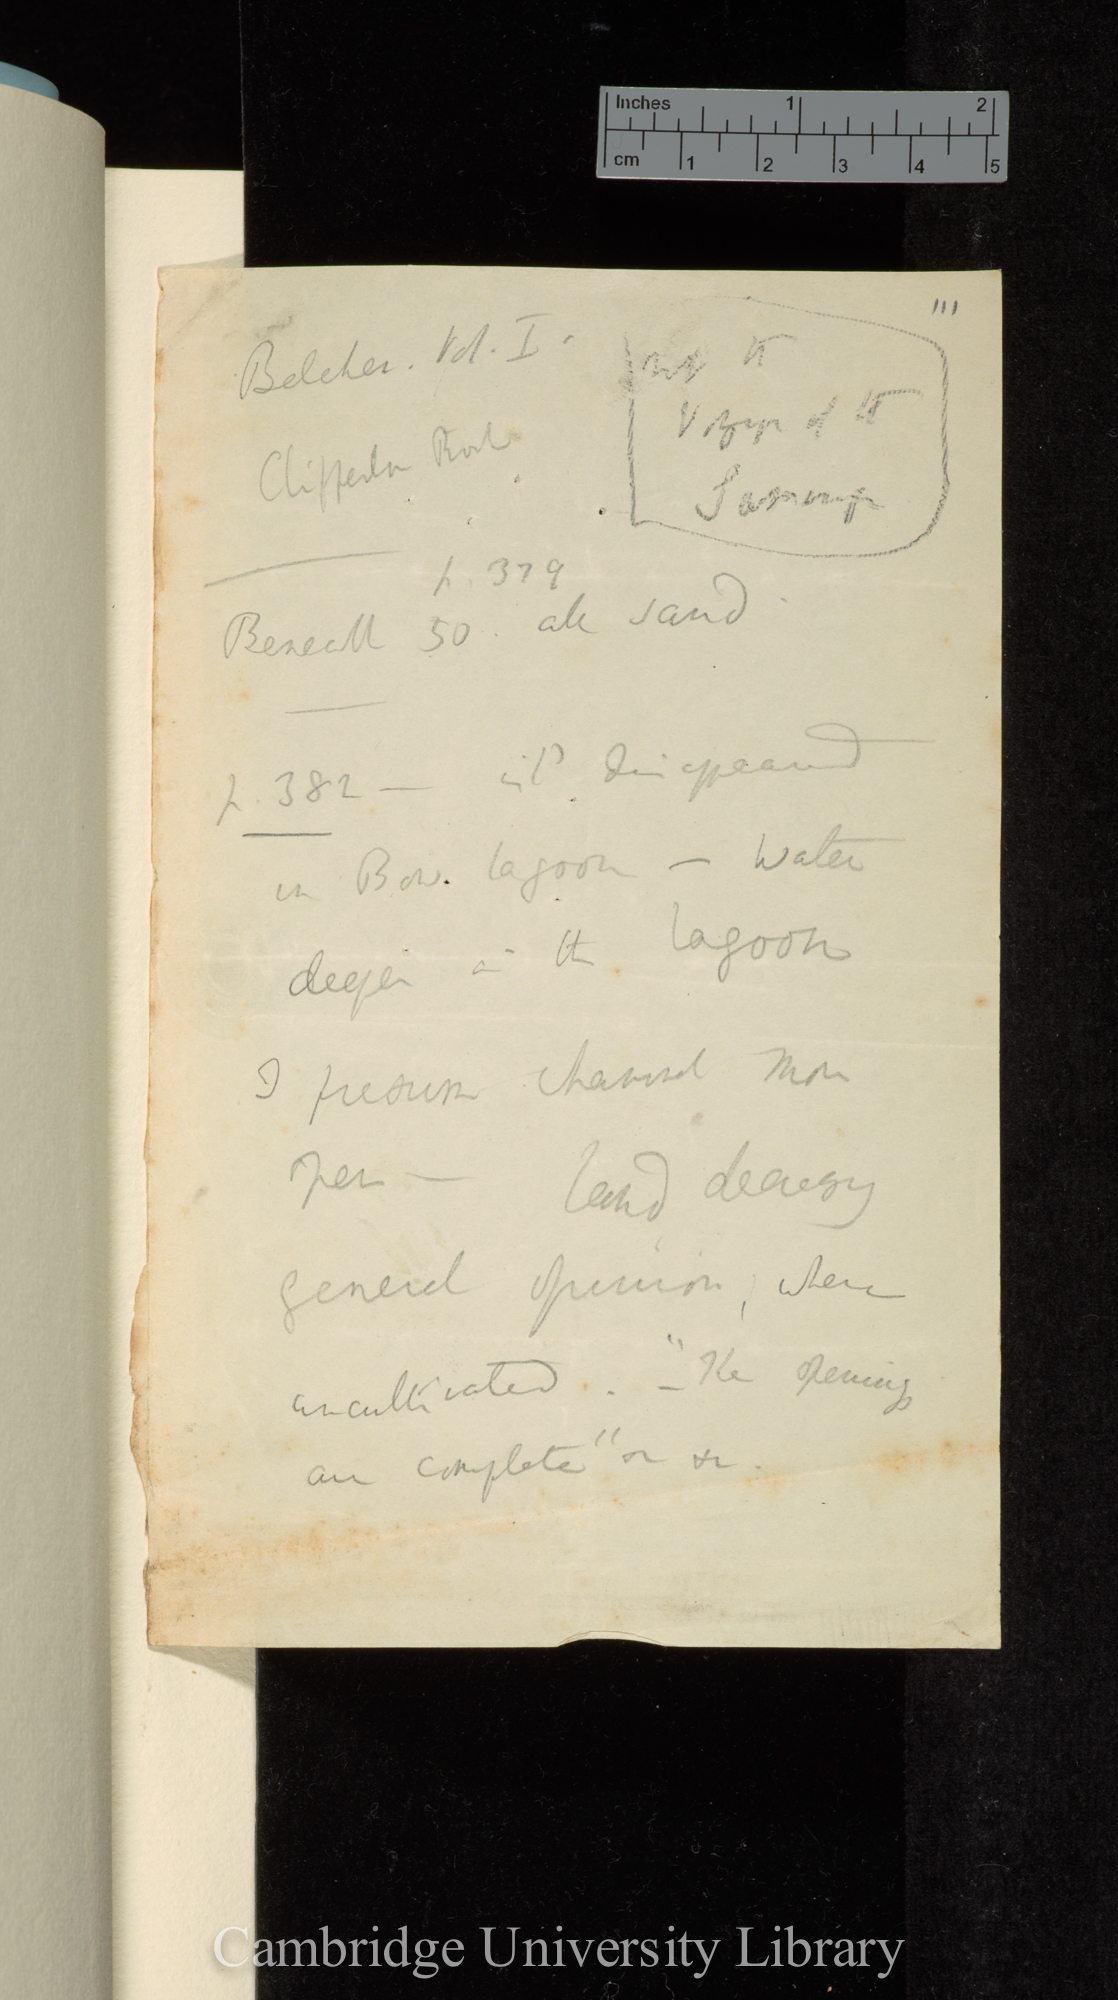 Inches 1 2
cm 1 2 3 4 5
111
Belcher. Vol. I.
not the
Voyage of the
Samarang
Clipperton Rock
p. 379
Beneath 50. all sand
p. 382 — disappeared
in Bow. lagoon — water
deeper in the lagoon
I presume channel more
open — land decreasing
general opinion, where
uncultivated. — "The openings
are complete" or so.
Cambridge University Library